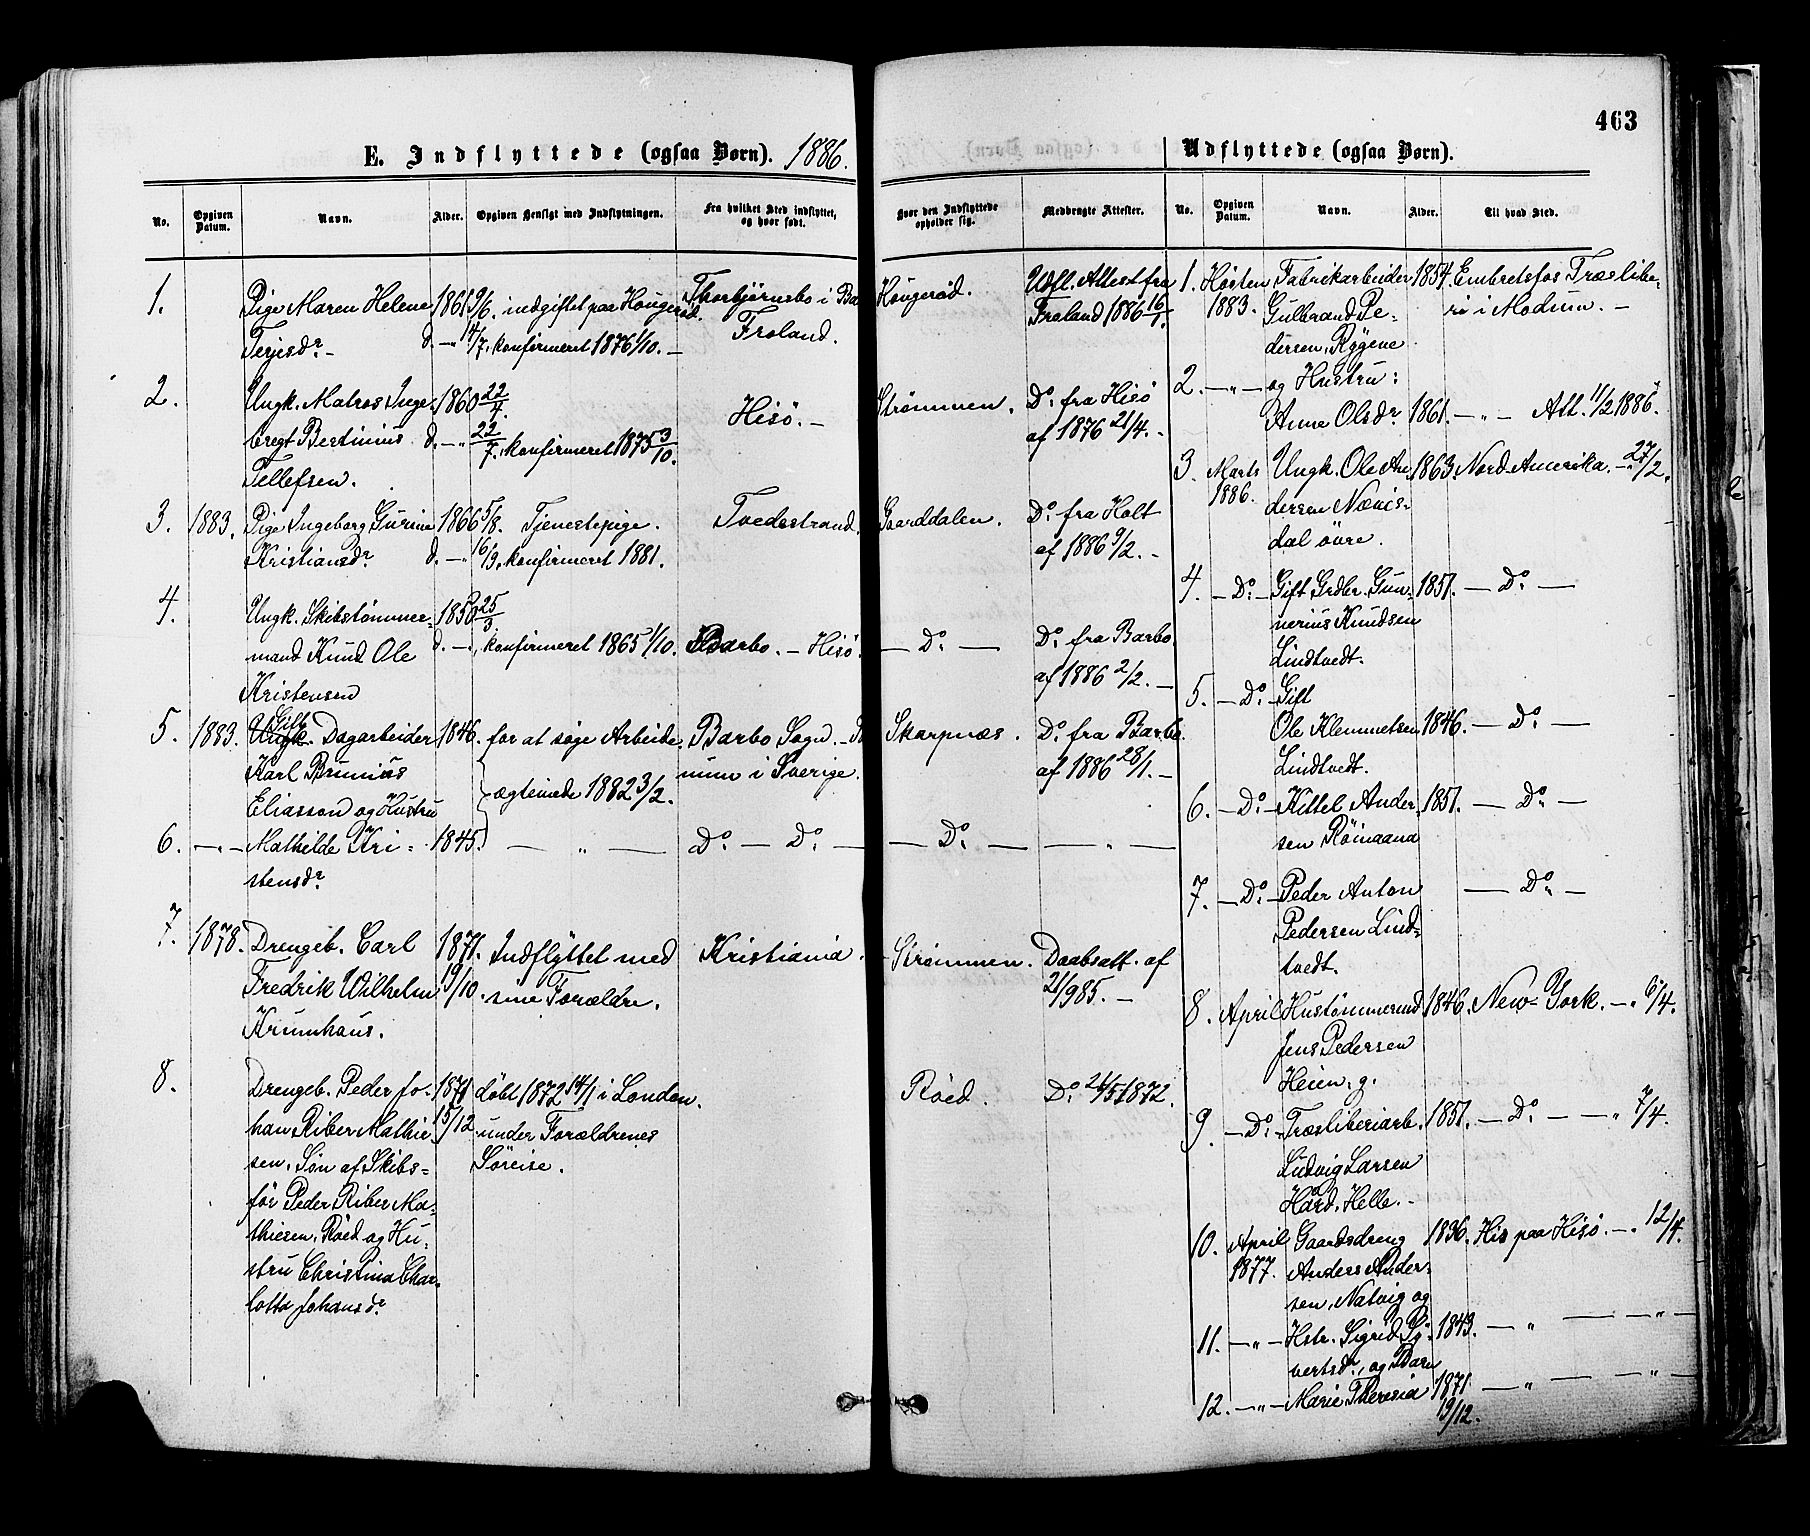 463
E. Indflyttede (ogsaa Børn). 1886.
No.
Opgiven Datum.
Navn.
Alder.
Opgiven Hensigt med Indflytningen.
Fra hvilket Sted indflyttet, og hvor født.
Hvor den Indflyttede opholder sig.
Medbragte Attester.
1. Pige Maren Helene 1861 9/6. indgiftet paa Hougerød. Thorbjørnsbo i Ba Hougerød. Udfl. Attest fra
Terjesdr. – d. –„ 14/7. konfirmeret 1876 1/10. – Froland. Froland 1886 16/1.
2. Ungk. Matros Inge- 1860 22/7. Hisö. – Strømmen. Do. fra Hisö
bregt Bertinius d. –„ 22/7. konfirmeret 1875 3/10. af 1876 21/4. –
Tellefsen.
3. 1883. Pige Ingeborg Gurine 1866 5/8. Tjenestepige. Tvedestrand. Gaarddalen. Do. fra Holt
Kristiansdr. d. –„ 16/9. konfirmeret 1881. af 1886 9/2. –
4. Ungk. Skibstømmer- 1850 25/3
mand Knud Ole d. –„ konfirmeret 1865 1/10. Barbo. – Hisö. – Do. – Do. fra Barbo
Kristensen af 1886 2/2. –
5. 1883. Ungk. Gift Dagarbeider 1846. for at søge Arbeide. Barbo Sogn. – Skarpnæs. Do. fra Barbo
Karl Brunius num i Sverige. af 1886 28/1. –
Eliasson og Hustru ægteviede 1882 3/2.
6. –„– Mathilde Kri- 1845. – „ – Do. – Do. – – Do. – – „ –
stensdr.
7. 1878. Drengeb. Carl 1871. Indflyttet med Kristiania. Strømmen. Daabsatt. af
Fredrik Wilhelm 19/10. sine Forældre. 21/9 85. –
Krumhaus.
8. Drengeb. Peder Jo- 1871 døbt 1872 14/1 i London. Röed. Do. 21/5 1872.
han Riber Mathie- 15/12 under Forældrenes
sen. Søn af Skibs- Søreise.
før Peder Riber Ma-
thiesen, Röed og Hu-
stru Christina Char-
lotta Johansdr.
Udflyttede (ogsaa Børn).
No.
Opgiven Datum.
Navn.
Alder.
Til hvad Sted.
1. Høsten Fabrikarbeider 1854. Embretsfos Træslibe-
1883. Gulbrand Pe- ri i Modum. –
dersen, Rygene
2. –„– og Hustru:
Anne Olsdr. 1861. –„– Att. 11/2 1886.
3. Marts Ungk. Ole An- 1863. Nord Amerika. –„ 27/2.
1886. dersen Nævis-
dal övre.
4. – Do. – Gift Grdbr. Gun- 1851. – Do. –
nerius Knudsen
Lindtvedt.
5. – Do. – Gift
Ole Klemmetsen 1846. – Do. –
Lindtvedt.
6. – Do. – Kittel Ander- 1851. – Do. –
sen Röinaana
7. – Do. – Peder Anton – Do. –
Pedersen Lind-
tvedt.
8. April Hustømmermd 1846. New-York. –„ 6/4.
Jens Pedersen
Heien. g.
9. – Do. – Træsliberiarb. 1851. – Do. – –„ 7/4.
Ludvig Larsen
Hard, Helle. –
10. April Gaardsdreng 1836. His paa Hisö. –„ 12/4.
1877. Anders Ander-
sen, Natvig og
11. –„– Hstr. Sigrid Sy- 1843. –„– –„–
vertsdr., og Barn
12. –„– Marie Theresia 1871. –„– –„–
19/12.